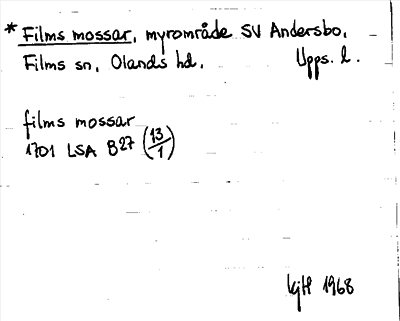 * Films mossar, myrområde SV Andersbo,
Films sn, Olands hd. Upps. l.
films mossar
1701 LSA B27 (13/1)
1968